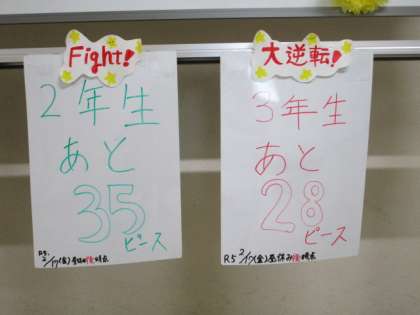 Fight!
2年生
あと
35
ピース
R5. 2/17(金)昼休み後時点
大逆転!
3年生
あと
28
ピース
R5 2/17(金)昼休み後時点